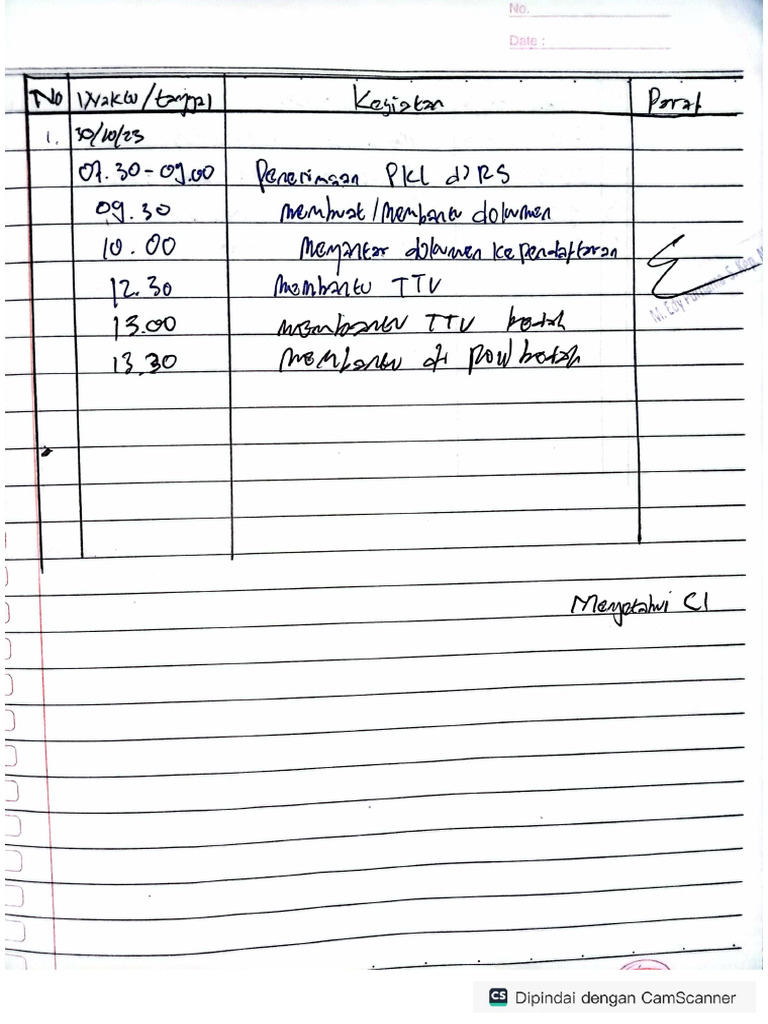 No.
Date :
No Waktu/tanggal Kegiatan Paraf
1. 30/10/23
07.30-09.00 Penerimaan PKL di RS
09.30 membuat/membantu dokumen
10.00 Mengantar dokumen ke pendaftaran
12.30 Membantu TTV
13.00 membantu TTV bedah
13.30 membantu di poli bedah
M. Edy S. Kep.
Mengetahui CI
CS Dipindai dengan CamScanner